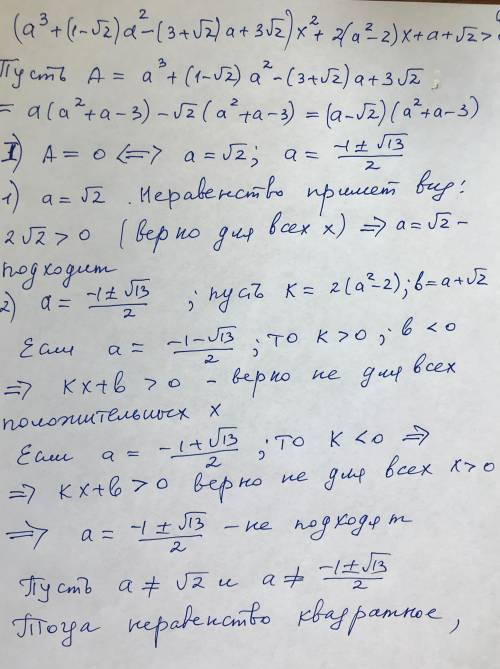 (a³+(1-√2)a²-(3+√2)a+3√2)x²+2(a²-2)x+a+√2>
Пусть A = a³+(1-√2)a²-(3+√2)a+3√2;
= a(a²+a-3)-√2(a²+a-3)=(a-√2)(a²+a-3)
I) A=0 <=> a=√2; a= (-1±√13)/2
1) a=√2. Неравенство примет вид:
2√2>0 (верно для всех x) => a=√2 -
подходит
2) a= (-1±√13)/2; пусть K=2(a²-2); b=a+√2
Если a= (-1-√13)/2; то K>0; b<0
=> Kx+b>0 - верно не для всех
положительных x
Если a= (-1+√13)/2; то K<0 =>
=> Kx+b>0 верно не для всех x>0
=> a= (-1±√13)/2 - не подходят
Пусть a≠√2 и a≠ (-1±√13)/2
Тогда неравенство квадратное,